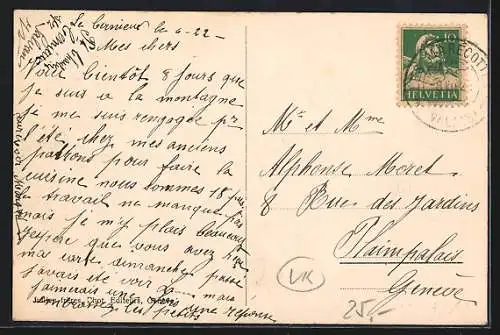 Mes chers
Voici bientôt 8 jours que
je suis a la montagne
je me suis rengagée pr
l'été chez mes anciens
patrons pour faire la
cuisine nous sommes 18 pers
le travail ne manque pas
mais je m'y plais beaucoup
j'espère que vous avez reçu
ma carte dimanche passé
j'avais été voir
Jullien frères, Phot. Editeurs, Genève
une réponse
HELVETIA
10
Mr et Mme
Alphonse Moret
8 Rue des Jardins
Plainpalais
Genève
VK
25,-